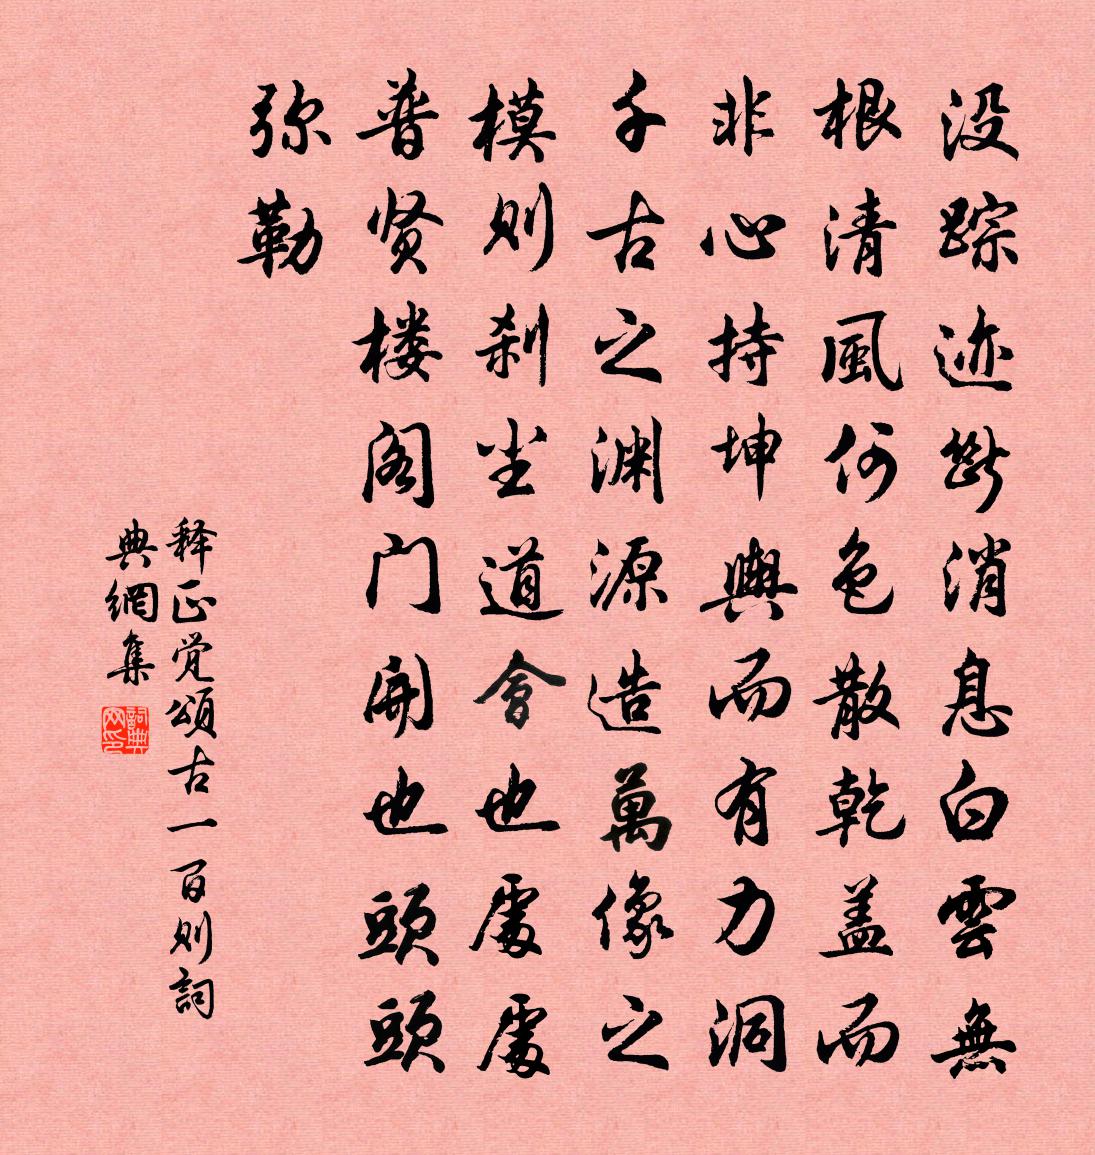 没踪迹断消息白雲無
根清風何色散乾盖而
非心持坤輿而有力洞
千古之渊源造萬像之
模则刹尘道會也處處
普贤楼阁门開也頭頭
弥勒
释正觉頌古一百则詞
典網集
詞典网印